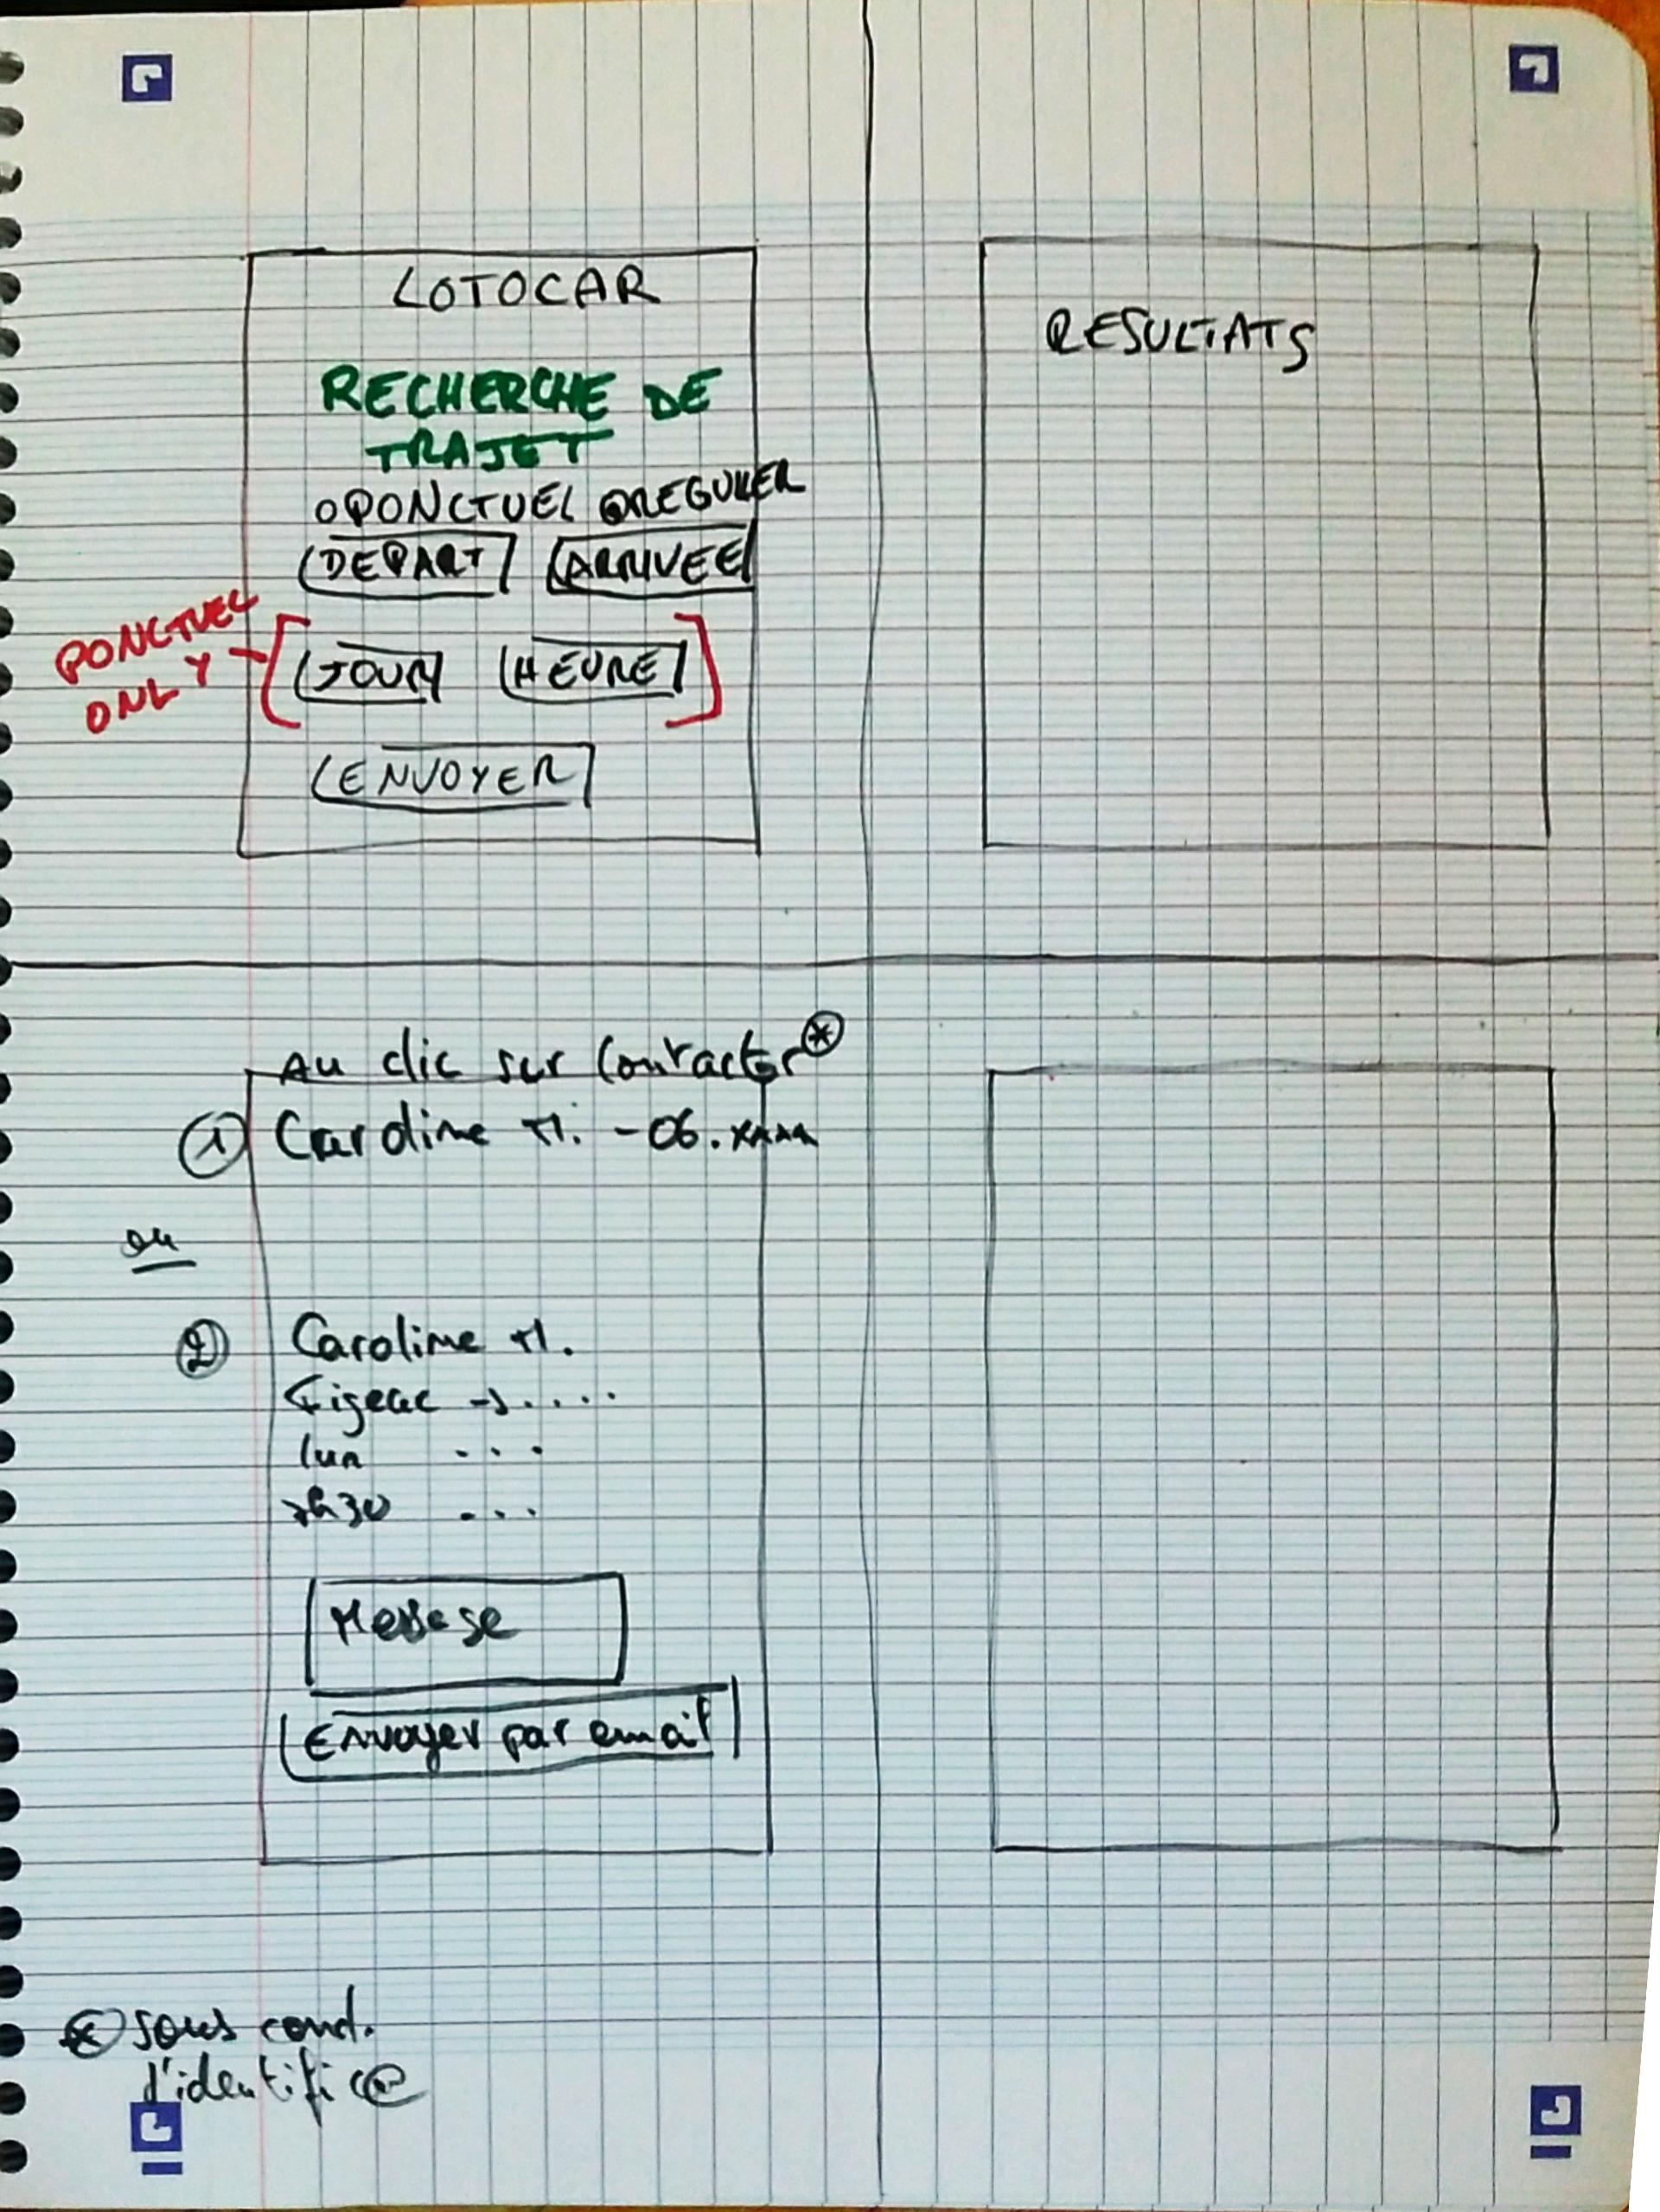 LOTOCAR
RECHERCHE DE
TRAJET
O PONCTUEL O REGULIER
DEPART ARRIVEE
PONCTUEL
ONLY
JOUR HEURE
ENVOYER
RESULTATS
Au clic sur Contacter *
1 Caroline M. - 06. xxxx
ou
2 Caroline M.
Figeac → ....
lun ...
7h30 ...
Message
Envoyer par email
* sous cond.
d'identific@